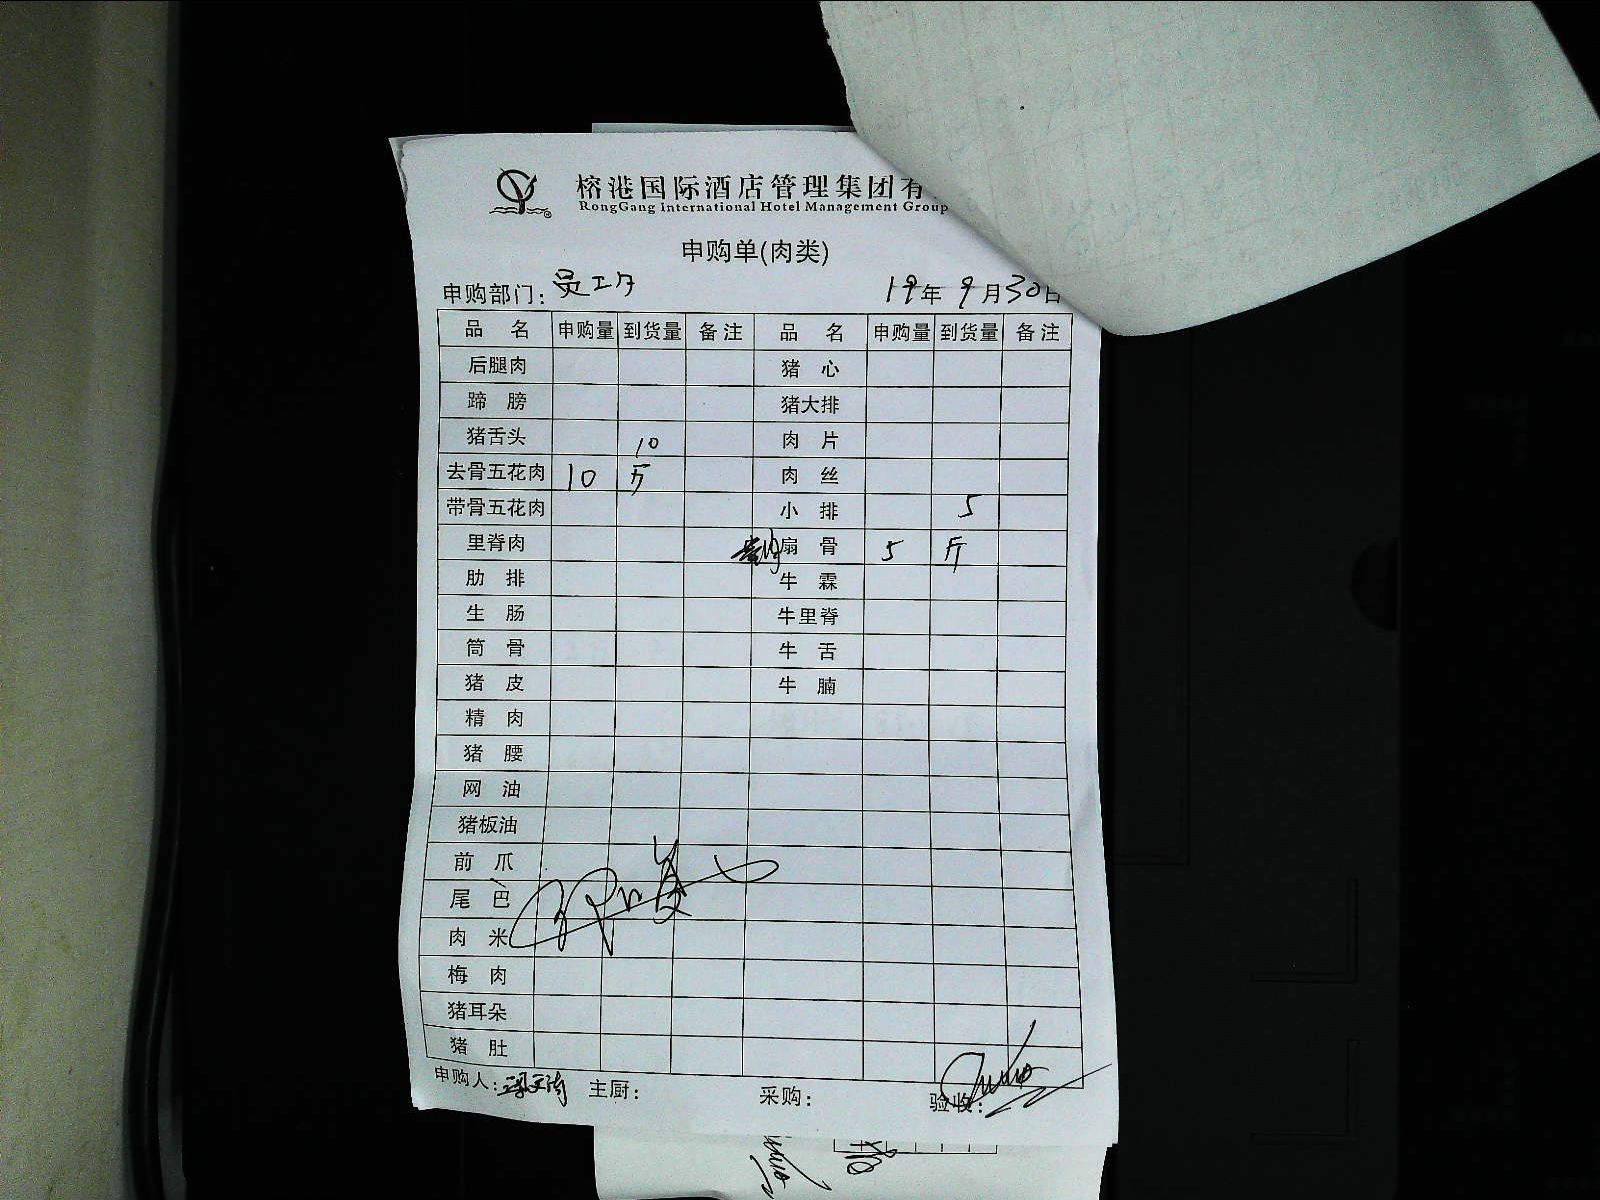 榕港国际酒店管理集团有
RongGang International Hotel Management Group
申购单(肉类)
申购部门：员工夕 19年9月30日
品 名 申购量 到货量 备注 品 名 申购量 到货量 备注
后腿肉 猪 心
蹄 膀 猪大排
猪舌头 10 肉 片
去骨五花肉 10 斤 肉 丝
带骨五花肉 小 排 5
里脊肉 扇 骨 5 斤
肋 排 牛 霖
生 肠 牛里脊
筒 骨 牛 舌
猪 皮 牛 腩
精 肉
猪 腰
网 油
猪板油
前 爪
尾 巴
肉 米
梅 肉
猪耳朵
猪 肚
申购人： 主厨： 采购： 验收：